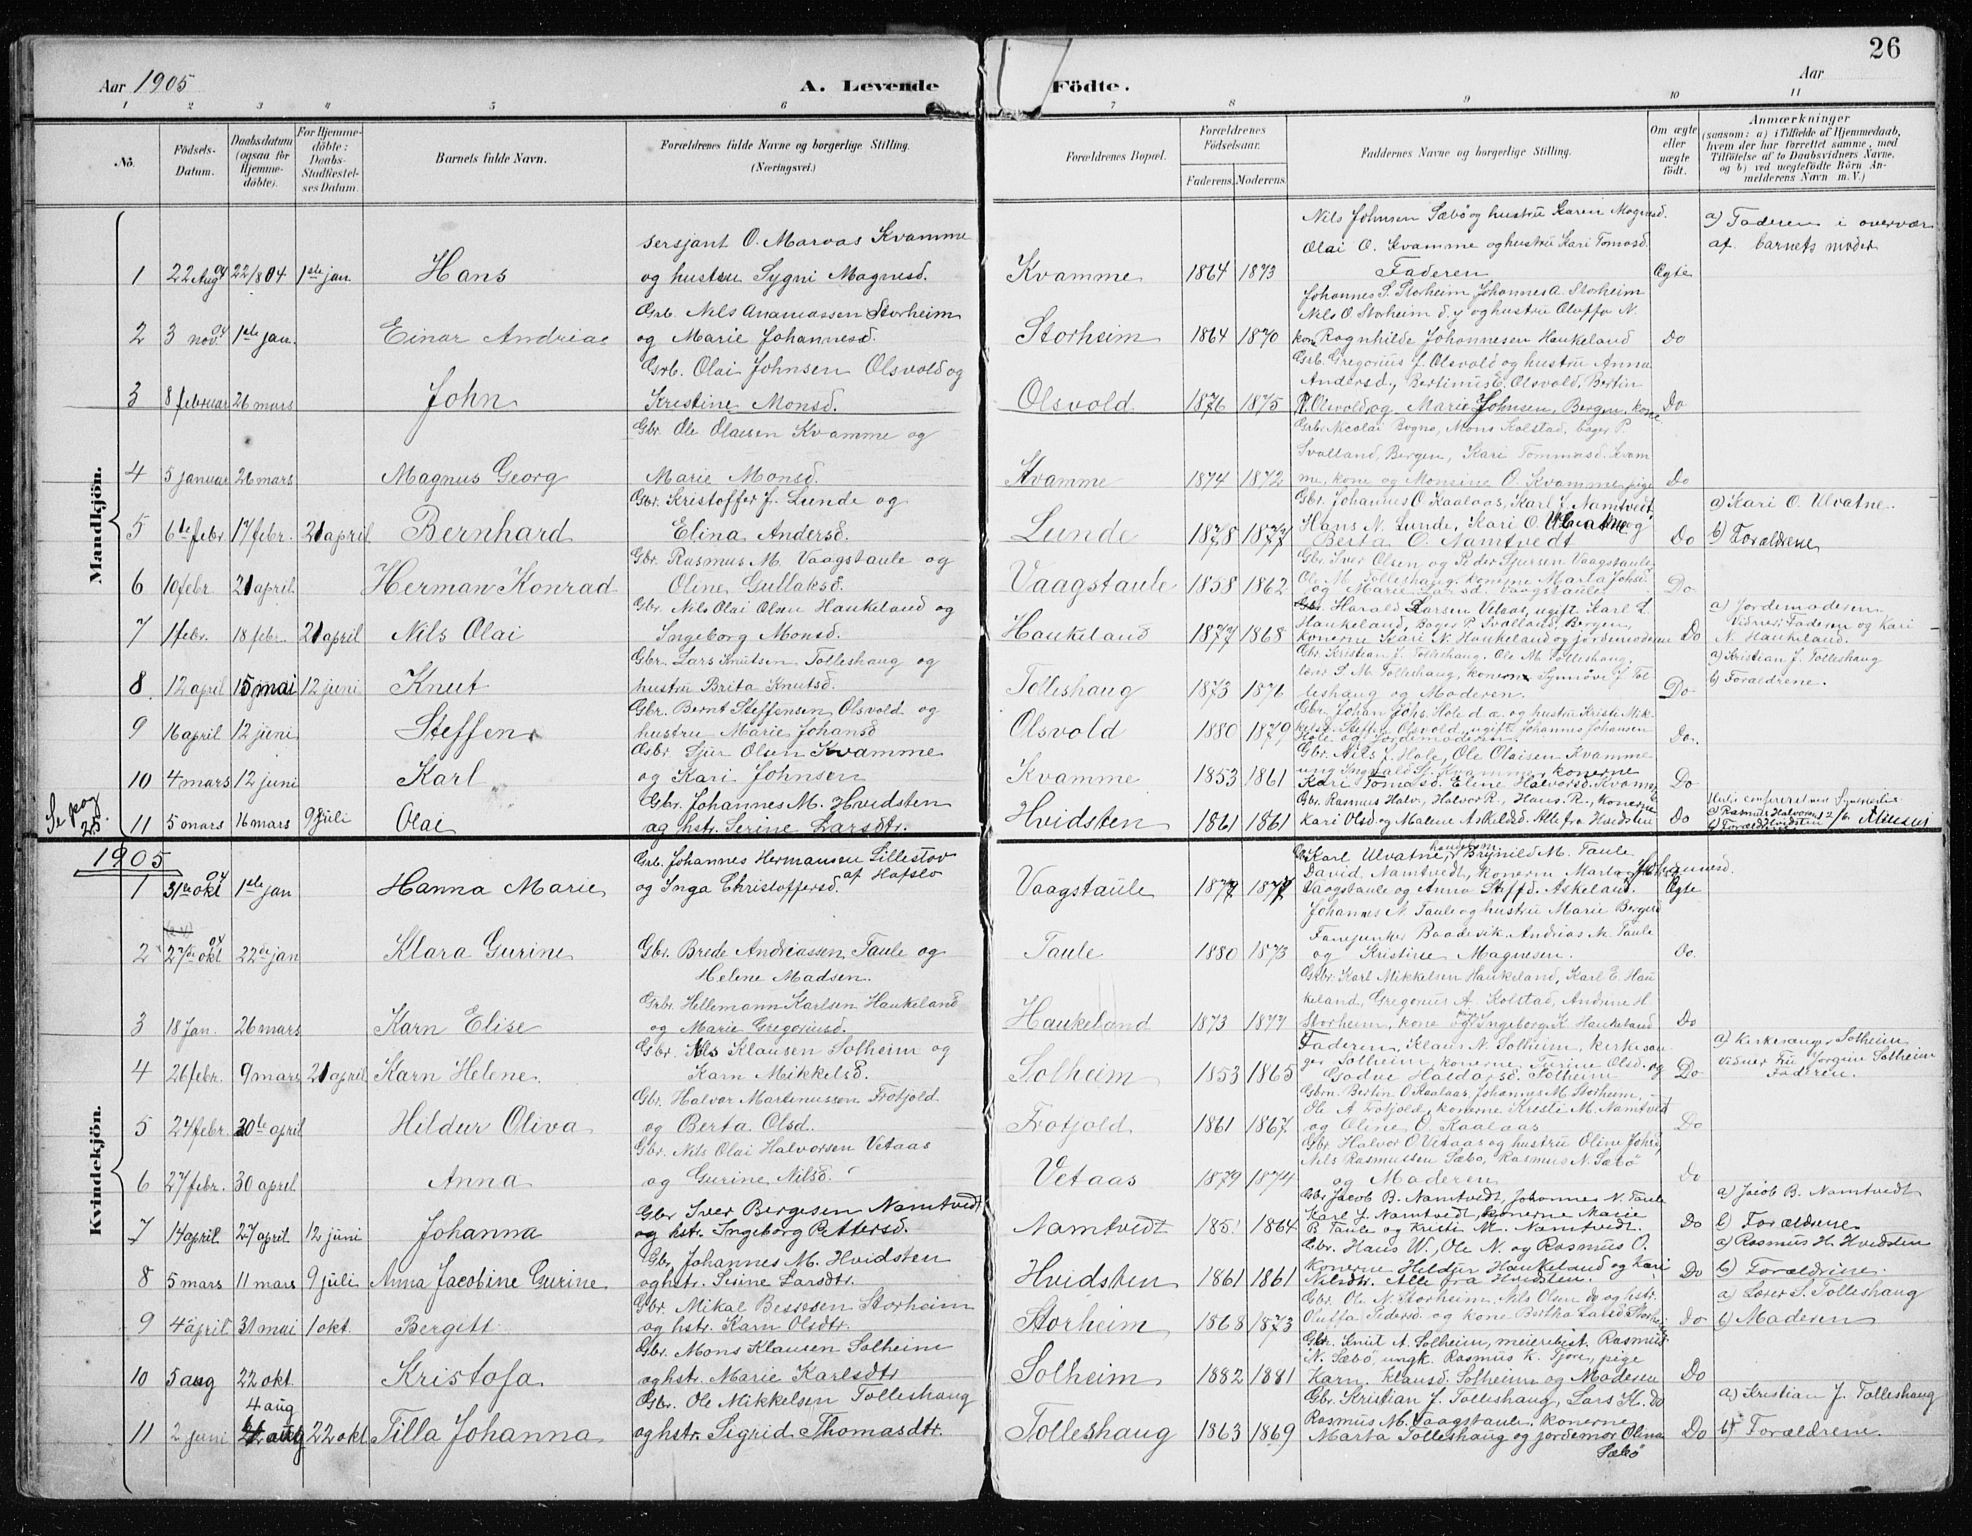 26
Aar 1905
A. Levende Födte.
Aar
1 2 3 4 5 6 7 8 9 10 11
No.
Födsels-Datum.
Daabsdatum (ogsaa for Hjemmedöbte).
For Hjemmedöbte: Daabs-Stadfestelses Datum.
Barnets fulde Navn.
Forældrenes fulde Navne og borgerlige Stilling. (Næringsvei.)
Forældrenes Bopæl.
Forældrenes Födselsaar.
Faderens. Moderens.
Faddernes Navne og borgerlige Stilling.
Om ægte eller uægte født.
Anmærkninger
(saasom: a) i Tilfælde af Hjemmedaab, hvem der har forrettet samme, med Tilföielse af to Daabsvidners Navne, og b) ved uægtefödte Börn Anmelderens Navn m. V.)
Mandkjön.
1 22 Aug 04 22/8 04 1ste jan. Hans
sersjant O. Marvas Kvamme
og hustru Sygni Magnesd.
Kvamme 1864 1873
Nils Johnsen Sæbö og hustru Karen Magnesd.
Olai O. Kvamme og hustru Kari Tomasd.
Faderen
Ægte
a) Faderen i overvær
af barnets moder
2 3 nov. 04 1ste jan. Einar Andrias
Grb. Nils Ananiassen Storheim
og Marie Johannesd.
Storheim 1864 1870
Johannes S. Storheim Johannes A. Storheim
Nils O Storheim d. y og hustru Oluffa N.
kone Ragnhilde Johannesen Haukeland
Do
3 8 februar 26 mars John
Grb. Olai Johnsen Olsvold og
Kristine Monsd.
Olsvold 1876 1875
Grb. Gregorius J. Olsvold og hustru Anna
Andersd., Bertinus E. Olsvold, Bertin
P. Olsvold og Marie Johnsen, Bergen, kone
Do
4 5 januar 26 mars Magnus Georg
Gbr. Ole Olaisen Kvamme og
Marie Monsd.
Kvamme 1874 1872
Grb. Nicolai Bogno, Mons Kolstad, bager P.
Svalland, Bergen, Kari Tommasd. Kvam
me, kone og Monsine O. Kvamme, pige
Do
5 6te febr 17 febr. 21 april Bernhard
Gbr. Kristoffer J. Lunde og
Elina Andersd.
Lunde 1878 1877
Gbr. Johannes O Kaalaas, Karl J. Namtvedt
Hans N. Lunde, Kari O. Ulvatne og
Berta O. Namtvedt
Do
a) Kari O. Ulvatne.
b) Forældrene
6 10 febr. 21 april. Herman Konrad
Gbr. Rasmus M. Vaagstaule og
Oline Gullaksd.
Vaagstaule 1858 1862
Gbr. Iver Olsen og Peder Sjursen Vaagstaule,
Ole M. Tolleshaug, konerne Marta Johsd.
og Marie Larsd. Vaagstaule
Do.
7 1 febr. 18 febr. 21 april Nils Olai
Gbr. Nils Olai Olsen Haukeland og
Ingeborg Monsd.
Haukeland 1877 1868
Gbr. Harald Larsen Vetaas, ugift Karl L.
Haukeland, Bager P. Svalland, Bergen,
konerne Kari N. Haukeland og jordemoderen
Do
a) Jordemoderen
Vidner: Faderen og Kari
N. Haukeland.
8 12 april 15 mai 12 juni Knut
Gbr. Lars Knutsen Tolleshaug og
hustru Brita Knutsd.
Tolleshaug 1873 1876
Gbr. Kristian J. Tolleshaug, Ole M. Tolleshaug,
lærer S. M. Tolleshaug, konerne Synnöve J. Tol
leshaug og Moderen.
Do
a) Kristian J. Tolleshaug
b) Forældrene.
9 16 april 12 juni Steffen
Gbr. Bernt Steffensen Olsvold og
hustru Marie Johansd
Olsvold 1880 1879
Gbr. Johan Johs. Hole d. a. og hustru Kristi Mik-
kelsd. Steffen Olsvold, ugift Johannes Johansen
Hole og Jordemoderen
Do.
10 4 mars 12 juni Karl
Gbr. Sjur Olsen Kvamme
og Kari Johnsen
Kvamme 1853 1861
Gbr. Nils J. Hole, Ole Olaisen Kvamme
ung. Ingvald Sj. Kvamme, konerne
Kari Tomasd. Eline Halvorsd. Kvamme
Do
Se pag 25.
11 5 mars 16 mars 9 juli Olai
Gbr. Johannes M. Hvidsten
og hstr. Serine Larsdtr.
Hvidsten 1861 1861
Gbr. Rasmus Halv., Halvor R., Hans. R., konerne
Kari Olsd og Malene Askelsd. Alle fra Hvidsten
Do
a) Rasmus Halvorsen
Hvidsten
b) Forældrene
1905
Kvindekjön.
1 31te okt 04 1ste jan Hanna Marie
Grb. Johannes Hermansen Lillestöv
af Hafslo
og Inga Christoffersd.
Vaagstaule 1877 1877
Gbr Karl Ulvatne, Brynild M. Taule
David. Namtvedt, konerne Marta Johannesd.
Vaagstaule og Anna Steffd. Askeland.
Ægte
2 27de okt 04 22de jan Klara Gurine
Gbr. Brede Andreassen Taule og
Helene Madsen.
Taule 1880 1873
Johannes N. Taule og hustru Marie Bergesd
Fanejunker Baadsvik. Andrias M. Taule
og Kristine Magnesen.
Do.
3 18 Jan. 26 mars Karn Elise
Grbr. Hellemann Karlsen Haukeland
og Marie Gregoriusd.
Haukeland 1873 1877
Grbr. Karl Mikkelsen Haukeland, Karl E. Hau
keland, Gregorius A. Kolstad, Andrine H.
Storheim, kone og Ingeborg K. Haukeland
Do
4 26 febr. 9 mars 21 april Karn Helene.
Gbr. Nils Klausen Solheim og
Karn Mikkelsd.
Solheim 1853 1865
Faderen, Klaus N. Solheim, kirkesan
ger Solheim, konerne Turine Olsd. og
Gadve Haldorsd. Solheim
Do
a) Kirkesanger Solheim
Vidner: Fru Jorgine Solheim
Faderen.
5 27 febr. 30te april Hildur Oliva
Gbr. Halvor Martinussen Frotjold
og Berta Olsd.
Frotjold 1861 1867
Gbrn. Bertin O Kaalaas, Johannes M. Storheim,
Ole A Frotjold, konerne Kristi M. Namtvedt
og Oline O. Kaalaas
Do
6 27 febr. 30 april Anna
Gbr. Nils Olai Halvorsen Vetaas
og Gurine Nilsd.
Vetaas 1879 1874
Gbr. Halvor O Vetaas og hustru Oline Johsd,
Nils Rasmussen Sæbö, Rasmus N. Sæbö
og Moderen
Do
7 14 april. 27 april. 12 juni Johanna
Gbr Iver Bergesen Namtvedt
og hstr. Ingeborg Pettersd.
Namtvedt 185 1864
Gbr Jacob B. Namtvedt, Johannes N. Taule
Karl J. Namtvedt, konerne Marie
B. Taule og Kristi M. Namtvedt.
Do
a) Jacob B. Namtvedt
b) Forældrene
8 5 mars 11 mars 9 juli Anna Jacobine Gurine
Gbr. Johannes M. Hvidsten
og hstr. Serine Larsdtr.
Hvidsten 1861 1861
Gbr. Hans W., Ole N. og Rasmus O.
konerne Heldur Haukeland og Kari
Nilsdtr. Alle fra Hvidsten.
Do
a) Rasmus H. Hvidsten
b) Forældrene.
9 4 april 31 mai 1 okt. Bergitt
Gbr. Mikal Bessesen Storheim
og hstr. Karn Olsdtr.
Storheim 1868 1873
Gbr. Ole N. Storheim, Nils Olsen og hstr.
Oluffa Pedersd. og kone Bertha Larsd Storheim
Do
a) Lærer S. Tolleshaug
b) Moderen
10 5 aug 22 okt. Kristofa
Gbr. Mons Klausen Solheim
og hstr. Marie Karlsdtr
Solheim 1882 1881
Gbr. Knut A. Solheim, meieribest. Rasmus
N. Sæbö, ungk. Rasmus K. Fjöre, pige
Karn. Klausd. Solheim og Moderen
Do
11 2 juni 4 aug 22 okt Tilla Johanna
Gbr. Ole Mikkelsen Tolleshaug
og hstr. Sigrid Thomasdtr.
Tolleshaug 1863 1869
Gbr. Kristian J. Tolleshaug, Lars K. do
Rasmus M. Vaagstaule, konerne
Marta Tolleshaug og jordemor Olina
Sæbö
Do
a) Kristian J. Tolleshaug
b) Forældrene.